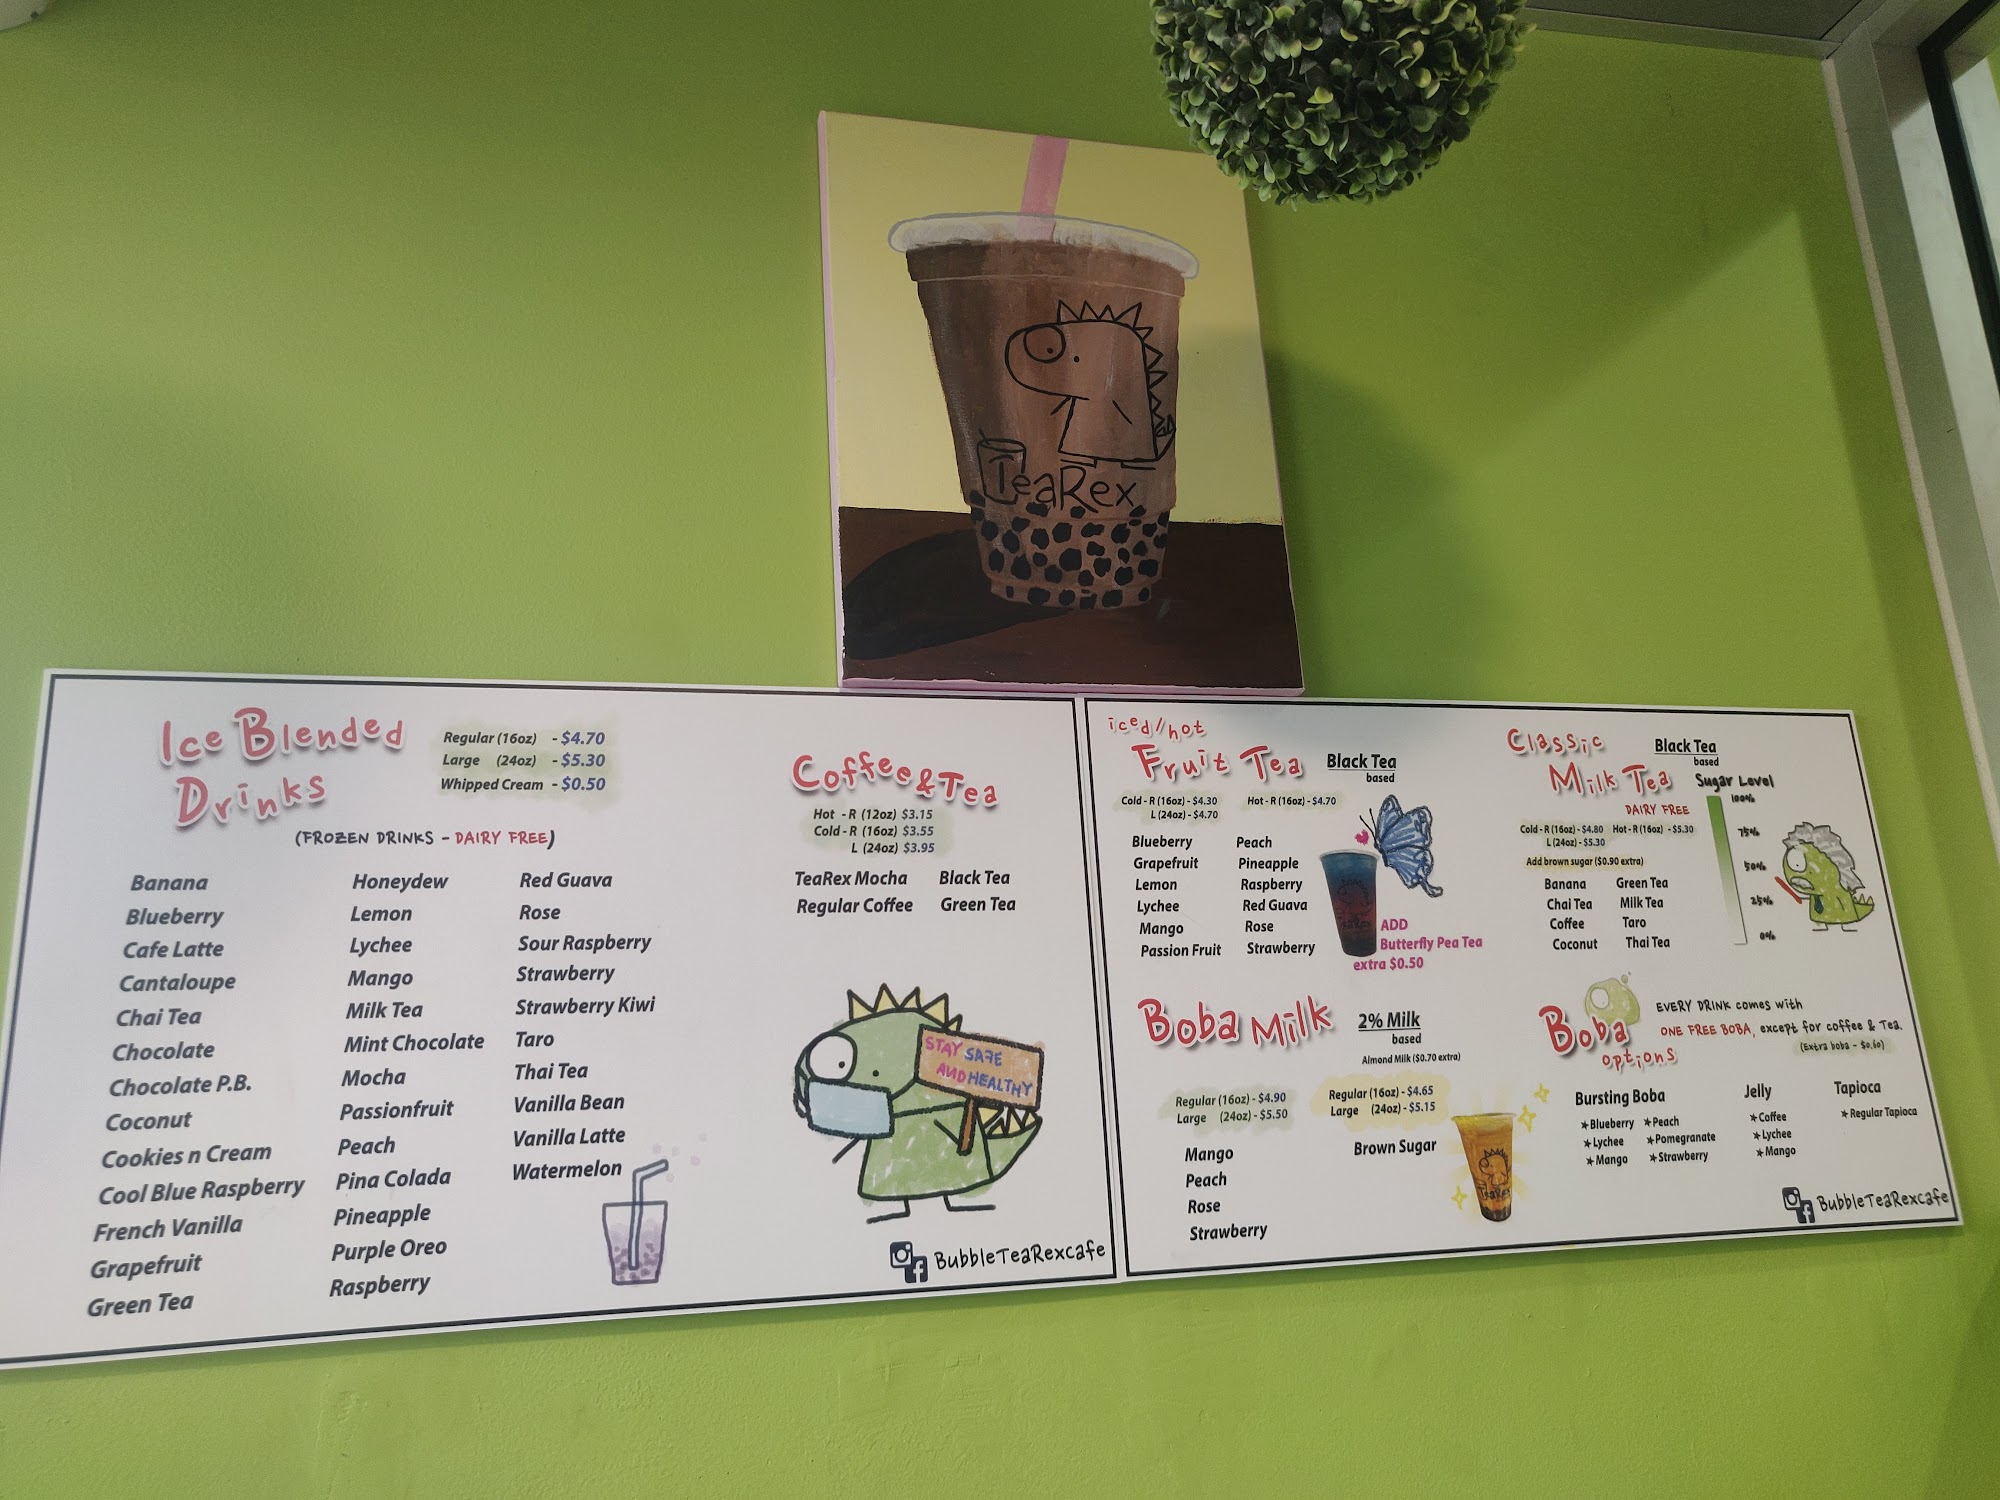 TeaRex
Ice Blended
Drinks
Regular (16oz) - $4.70
Large (24oz) - $5.30
Whipped Cream - $0.50
(FROZEN DRINKS - DAIRY FREE)
Banana
Blueberry
Cafe Latte
Cantaloupe
Chai Tea
Chocolate
Chocolate P.B.
Coconut
Cookies n Cream
Cool Blue Raspberry
French Vanilla
Grapefruit
Green Tea
Honeydew
Lemon
Lychee
Mango
Milk Tea
Mint Chocolate
Mocha
Passionfruit
Peach
Pina Colada
Pineapple
Purple Oreo
Raspberry
Red Guava
Rose
Sour Raspberry
Strawberry
Strawberry Kiwi
Taro
Thai Tea
Vanilla Bean
Vanilla Latte
Watermelon
Coffee & Tea
Hot - R (12oz) $3.15
Cold - R (16oz) $3.55
L (24oz) $3.95
TeaRex Mocha
Regular Coffee
Black Tea
Green Tea
STAY SAFE
AND HEALTHY
BubbleTeaRexcafe
iced//hot
Fruit Tea
Black Tea
based
Cold - R (16oz) - $4.30
L (24oz) - $4.70
Hot - R (16oz) - $4.70
Blueberry
Grapefruit
Lemon
Lychee
Mango
Passion Fruit
Peach
Pineapple
Raspberry
Red Guava
Rose
Strawberry
ADD
Butterfly Pea Tea
extra $0.50
Classic
Milk Tea
Black Tea
based
DAIRY FREE
Cold - R (16oz) - $4.80
L (24oz) - $5.30
Hot - R (16oz) - $5.30
Add brown sugar ($0.90 extra)
Banana
Chai Tea
Coffee
Coconut
Green Tea
Milk Tea
Taro
Thai Tea
Sugar Level
100%
75%
50%
25%
0%
Boba Milk
2% Milk
based
Almond Milk ($0.70 extra)
Regular (16oz) - $4.90
Large (24oz) - $5.50
Mango
Peach
Rose
Strawberry
Regular (16oz) - $4.65
Large (24oz) - $5.15
Brown Sugar
TeaRex
Boba
options
EVERY DRINK comes with
ONE FREE BOBA, except for coffee & Tea.
(Extra boba - $0.60)
Bursting Boba
★ Blueberry
★ Lychee
★ Mango
★ Peach
★ Pomegranate
★ Strawberry
Jelly
★ Coffee
★ Lychee
★ Mango
Tapioca
★ Regular Tapioca
BubbleTeaRexcafe